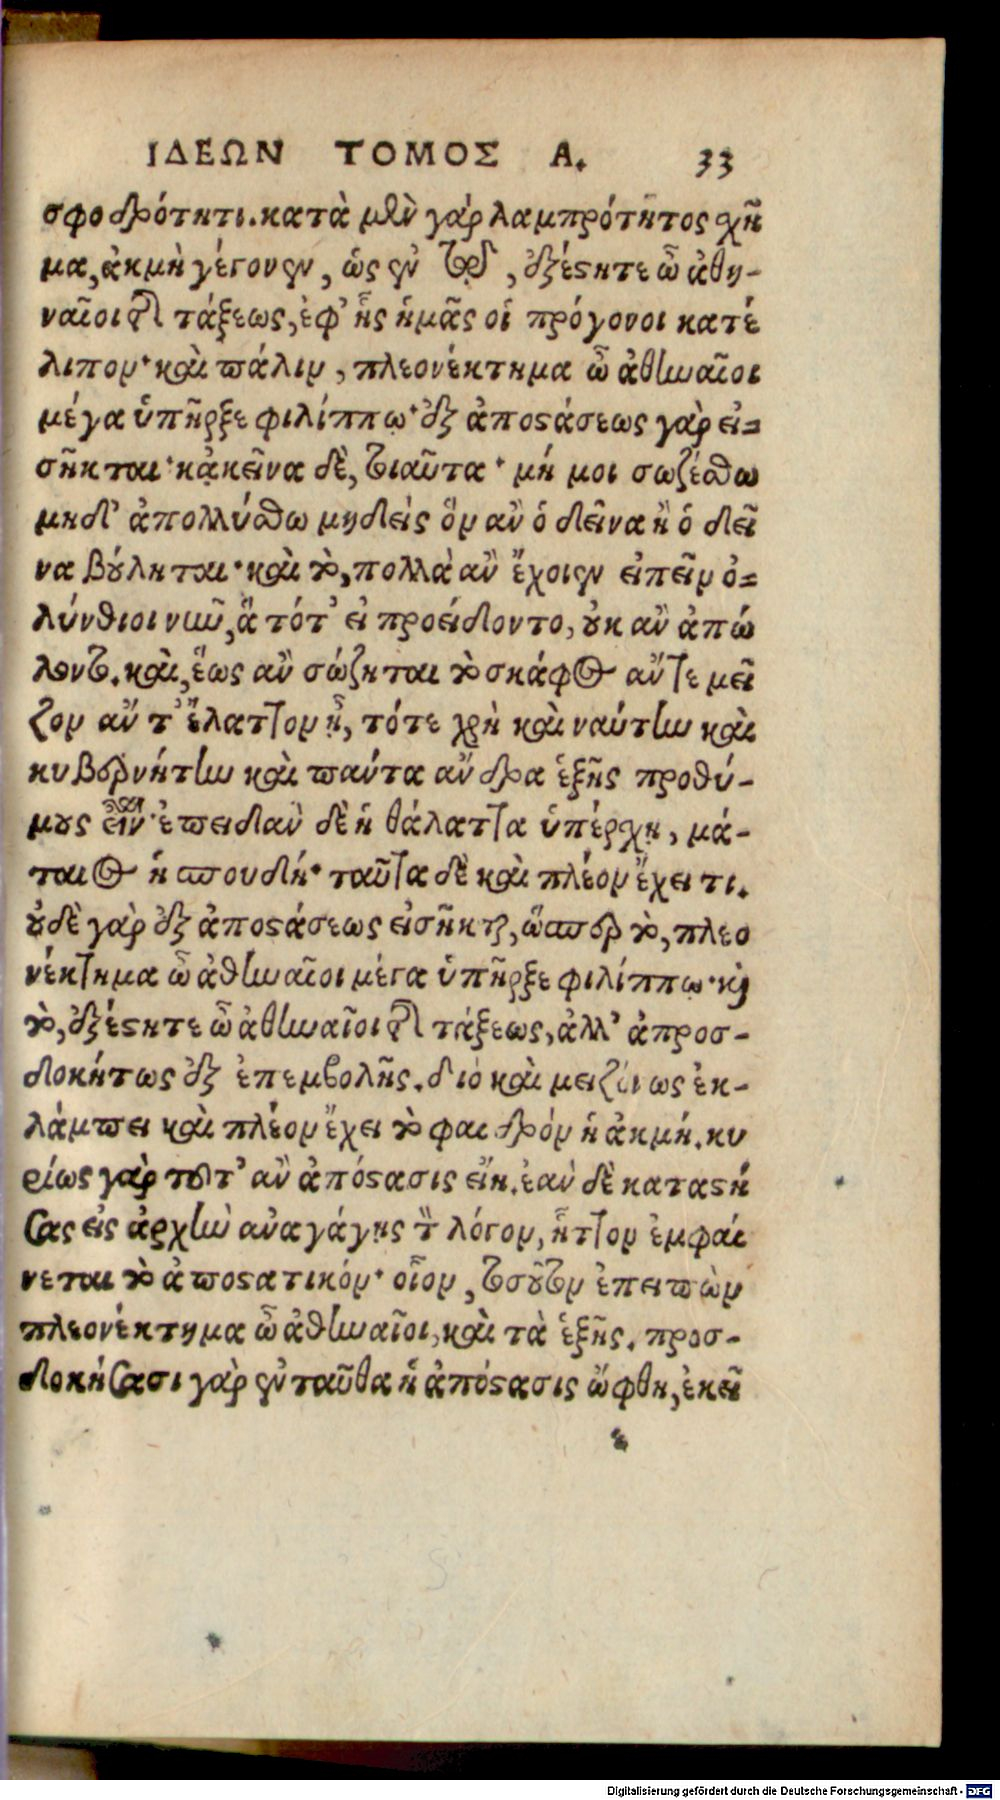 ΙΔΕΩΝ ΤΟΜΟΣ Α. 33
σφοδρότητι. κατὰ μὲν γὰρ λαμπρότητος χῆ
μα, ἀκμὴ γέγονεν, ὡς ἐν τῷ, ἐξέστητε ὦ ἀθη-
ναῖοι τῆς τάξεως, ἐφ' ἧς ἡμᾶς οἱ πρόγονοι κατέ
λιπον· καὶ πάλιν, πλεονέκτημα ὦ ἀθηναῖοι
μέγα ὑπῆρξε φιλίππῳ· ἐξ ἀποστάσεως γὰρ εἰ=
σῆκται· κἀκεῖνα δὲ, τοιαῦτα· μή μοι σωζέσθω
μηδ' ἀπολλύσθω μηδεὶς ὃν ἂν ὁ δεῖνα ἢ ὁ δεῖ
να βούληται· καὶ τὸ, πολλὰ ἂν ἔχοιεν εἰπεῖν ὀ=
λύνθιοι νῦν, ἃ τότ' εἰ προείδοντο, οὐκ ἂν ἀπώ
λοντο. καὶ, ἕως ἂν σώζηται τὸ σκάφος ἄν τε μεῖ
ζον ἄν τ' ἔλαττον ᾖ, τότε χρὴ καὶ ναύτην καὶ
κυβερνήτην καὶ πάντα ἄνδρα ἑξῆς προθύ-
μους εἶναι· ἐπειδὰν δὲ ἡ θάλαττα ὑπέρχῃ, μά-
ταιος ἡ σπουδή· ταῦτα δὲ καὶ πλέον ἔχει τι.
οὐδὲ γὰρ ἐξ ἀποστάσεως εἰσῆκται, ὥσπερ τὸ, πλεο
νέκτημα ὦ ἀθηναῖοι μέγα ὑπῆρξε φιλίππῳ· καὶ
τὸ, ἐξέστητε ὦ ἀθηναῖοι τῆς τάξεως, ἀλλ' ἀπροσ-
δοκήτως ἐξ ἐπεμβολῆς. διὸ καὶ μειζόνως ἐκ-
λάμπει καὶ πλέον ἔχει τὸ φαιδρόν ἡ ἀκμή. κυ
ρίως γὰρ τοῦτ' ἂν ἀπόστασις εἴη. ἐὰν δὲ καταστή
σας εἰς ἀρχὴν ἀναγάγῃς τὸν λόγον, ἧττον ἐμφαί
νεται τὸ ἀποστατικόν· οἷον, τοσοῦτον ἐπειπὼν
πλεονέκτημα ὦ ἀθηναῖοι, καὶ τὰ ἑξῆς. προσ-
δοκήσασι γὰρ ἐνταῦθα ἡ ἀπόστασις ὤφθη, ἐκεῖ
ε
Digitalisierung gefördert durch die Deutsche Forschungsgemeinschaft - DFG